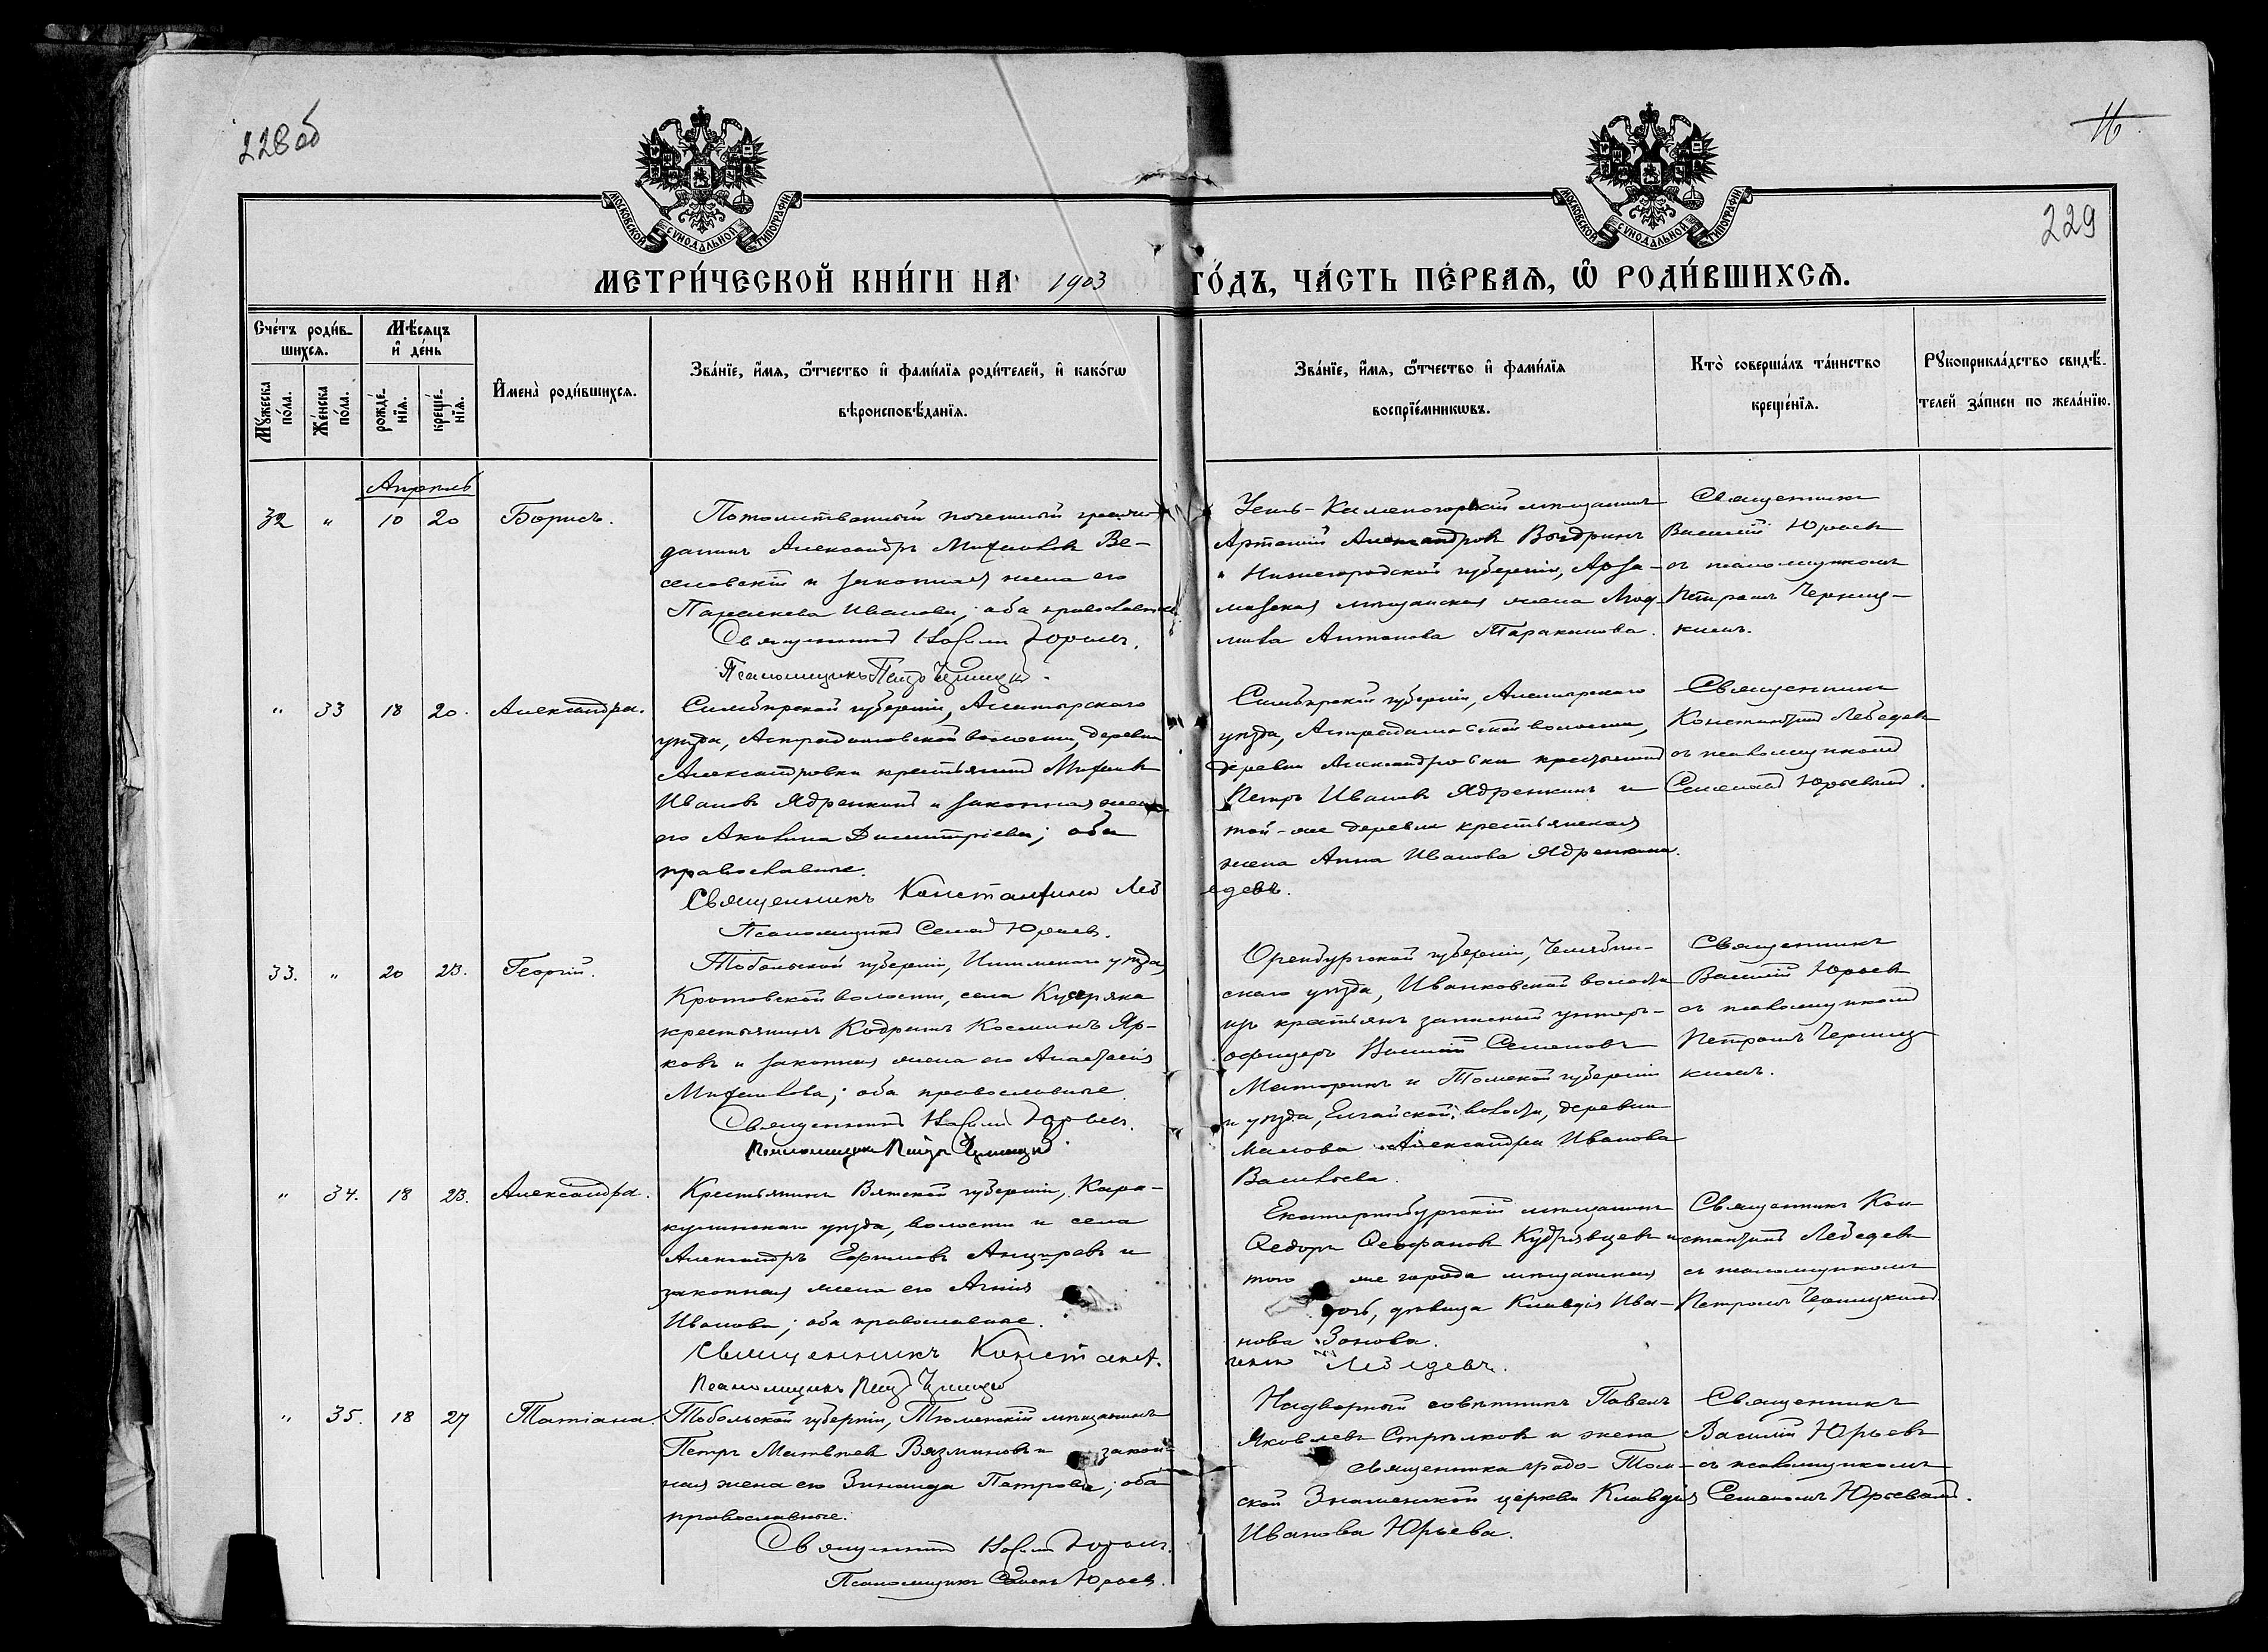 228 об
16
229
МОСКОВСКОЙ СѴНОДАЛЬНОЙ ТИПОГРАФІИ
МОСКОВСКОЙ СѴНОДАЛЬНОЙ ТИПОГРАФІИ
МЕТРИ́ЧЕСКОЙ КНИ́ГИ НА 1903 ГО́ДЪ, ЧА́СТЬ ПЕ́РВАѦ, Ѽ РОДИ́ВШИХСѦ.
Сче́тъ роди́в-
шихсѧ.
Мꙋжеска по́ла.
Же́нска по́ла.
Мѣ́сѧцъ
и҆ де́нь
рожде́-
нїѧ.
креще́-
нїѧ.
И҆мена̀ роди́вшихсѧ.
Зва́нїе, и҆́мѧ, ѻ҆́тчество и҆ фами́лїѧ роди́телей, и҆ како́гѡ
вѣроисповѣ́данїѧ.
Зва́нїе, и҆́мѧ, ѻ҆́тчество и҆ фами́лїѧ
воспрїе́мникѡвъ.
Кто̀ соверша́лъ та́инство
креще́нїѧ.
Рꙋкоприкла́дство свидѣ́-
телей за́писи по жела́нїю.
Апрѣль
32 " 10 20 Борисъ.
Потомственный почетный гражда-
данинъ Александръ Михаиловъ Ве-
селовскій и законная жена его
Параскева Иванова; оба православные
Священникъ Василій Юрьевъ.
Псаломщикъ Петръ Черницкій.
Усть-Каменогорскій мѣщанинъ
Артемій Александровъ Выдринъ
и Нижегородской губерніи, Арза-
масская мѣщанская жена
Антонова Тараканова.
Священникъ
Василій Юрьевъ
съ псаломщикомъ
Петромъ Черниц-
кимъ.
" 33 18 20. Александра.
Симбирской губерніи, Алатырскаго
уѣзда, Астрадамовской волости, деревни
Александровки крестьянинъ Михаилъ
Ивановъ Ядренкинъ и законная жена
его Акилина Димитріева; оба
православные.
Священникъ Константинъ Лебедевъ.
Псаломщикъ Семенъ Юрьевъ.
Симбирской губерніи, Алатырскаго
уѣзда, Астрадамовской волости,
деревни Александровки крестьянинъ
Петръ Ивановъ Ядренкинъ и
той-же деревни крестьянская
жена Анна Иванова Ядренкина.
Священникъ
Константинъ Лебедевъ
съ псаломщикомъ
Семеномъ Юрьевымъ.
33. " 20 23. Георгій.
Тобольской губерніи, Ишимскаго уѣзда,
Кротовской волости, села Кусеряка
крестьянинъ Кодратъ Косминъ Яр-
ковъ и законная жена его Анастасія
Михаилова; оба православные.
Священникъ Василій Юрьевъ.
Псаломщикъ Петръ Черницкій.
Оренбургской губерніи, Челябин-
скаго уѣзда, Иванковской волости
изъ крестьянъ запасный унтеръ-
офицеръ Василій Семеновъ
и Томской губерніи
и уѣзда, волости, деревни
Александра Иванова
Васильева.
Священникъ
Василій Юрьевъ
съ псаломщикомъ
Петромъ Черниц-
кимъ.
" 34. 18 23. Александра.
Крестьянинъ Вятской губерніи, Кара-
кулинскаго уѣзда, волости и села
Александръ Ефимовъ Анцыревъ и
законная жена его Агнія
Иванова; оба православные.
Священникъ Константинъ Лебедевъ.
Псаломщикъ Петръ Черницкій
Екатеринбургскій мѣщанинъ
Ѳедоръ Ѳеофановъ Кудрявцевъ и
того же города мѣщанская
дочь, дѣвица Клавдія Ива-
нова Зонова.
Священникъ Кон-
стантинъ Лебедевъ
съ псаломщикомъ
Петромъ Черницкимъ
" 35. 18 27 Татіана.
Тобольской губерніи, Тюменскій мѣщанинъ
Петръ Матвѣевъ Вязминовъ и закон-
ная жена его Зинаида Петрова; оба
православные.
Священникъ Василій Юрьевъ.
Псаломщикъ Семенъ Юрьевъ.
Надворный совѣтникъ Павелъ
Яковлевъ Стрѣлковъ и жена
священника градо-Том-
ской Знаменской церкви Клавдія
Иванова Юрьева.
Священникъ
Василій Юрьевъ
съ псаломщикомъ
Семеномъ Юрьевымъ.